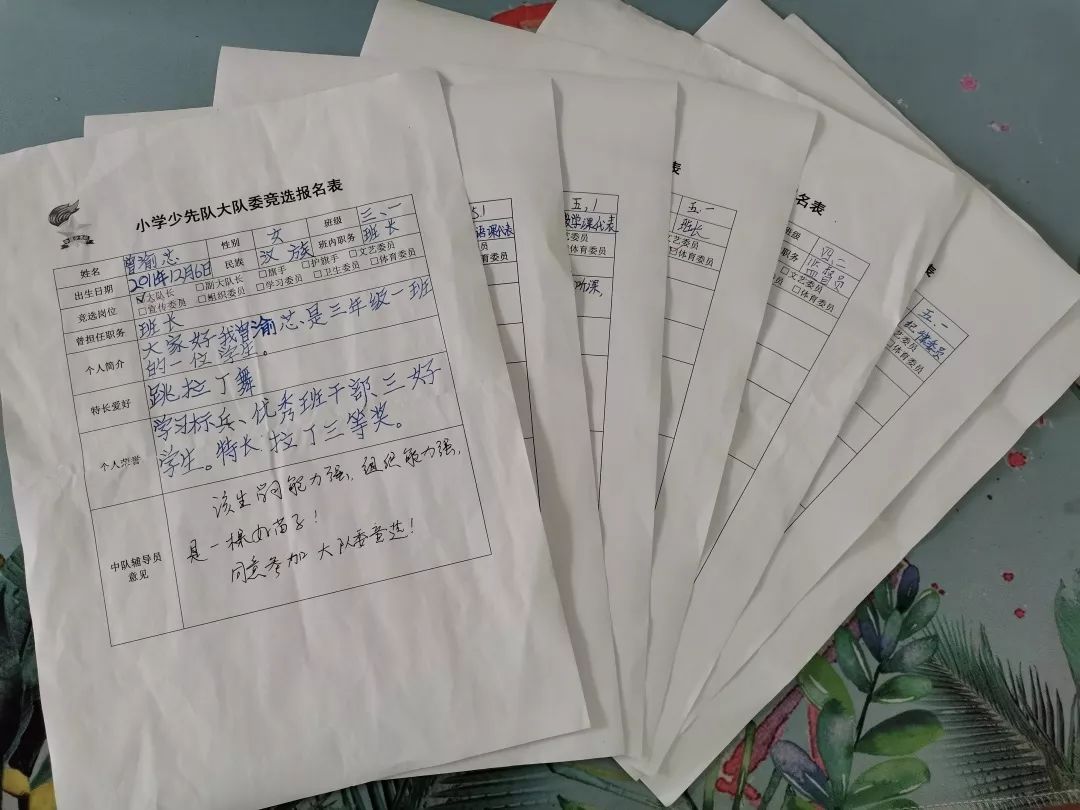 小学少先队大队委竞选报名表
姓名 曾渝芯 性别 女 班级 三、一
出生日期 2014年12月6日 民族 汉族 班内职务 班长
竞选岗位 ☑大队长 □副大队长 □旗手 □护旗手 □文艺委员
□宣传委员 □组织委员 □学习委员 □卫生委员 □体育委员
曾担任职务 班长
个人简介 大家好我曾渝芯,是三年级一班
的一位学生。
特长爱好 跳拉丁舞
个人荣誉 学习标兵、优秀班干部、三好
学生。特长:拉丁三等奖。
中队辅导员
意见
该生学习能力强,组织能力强,
是一棵好苗子!
同意参加大队委竞选!
5.1
语课代表
艺委员
□体育委员
五,1
数学课代表
艺委员
□体育委员
表
五.一
班长
文艺委员
□体育委员
名表
班级 四二
职务 监督员
□文艺委员
□体育委员
表
五、一
纪律委员
艺委员
□体育委员